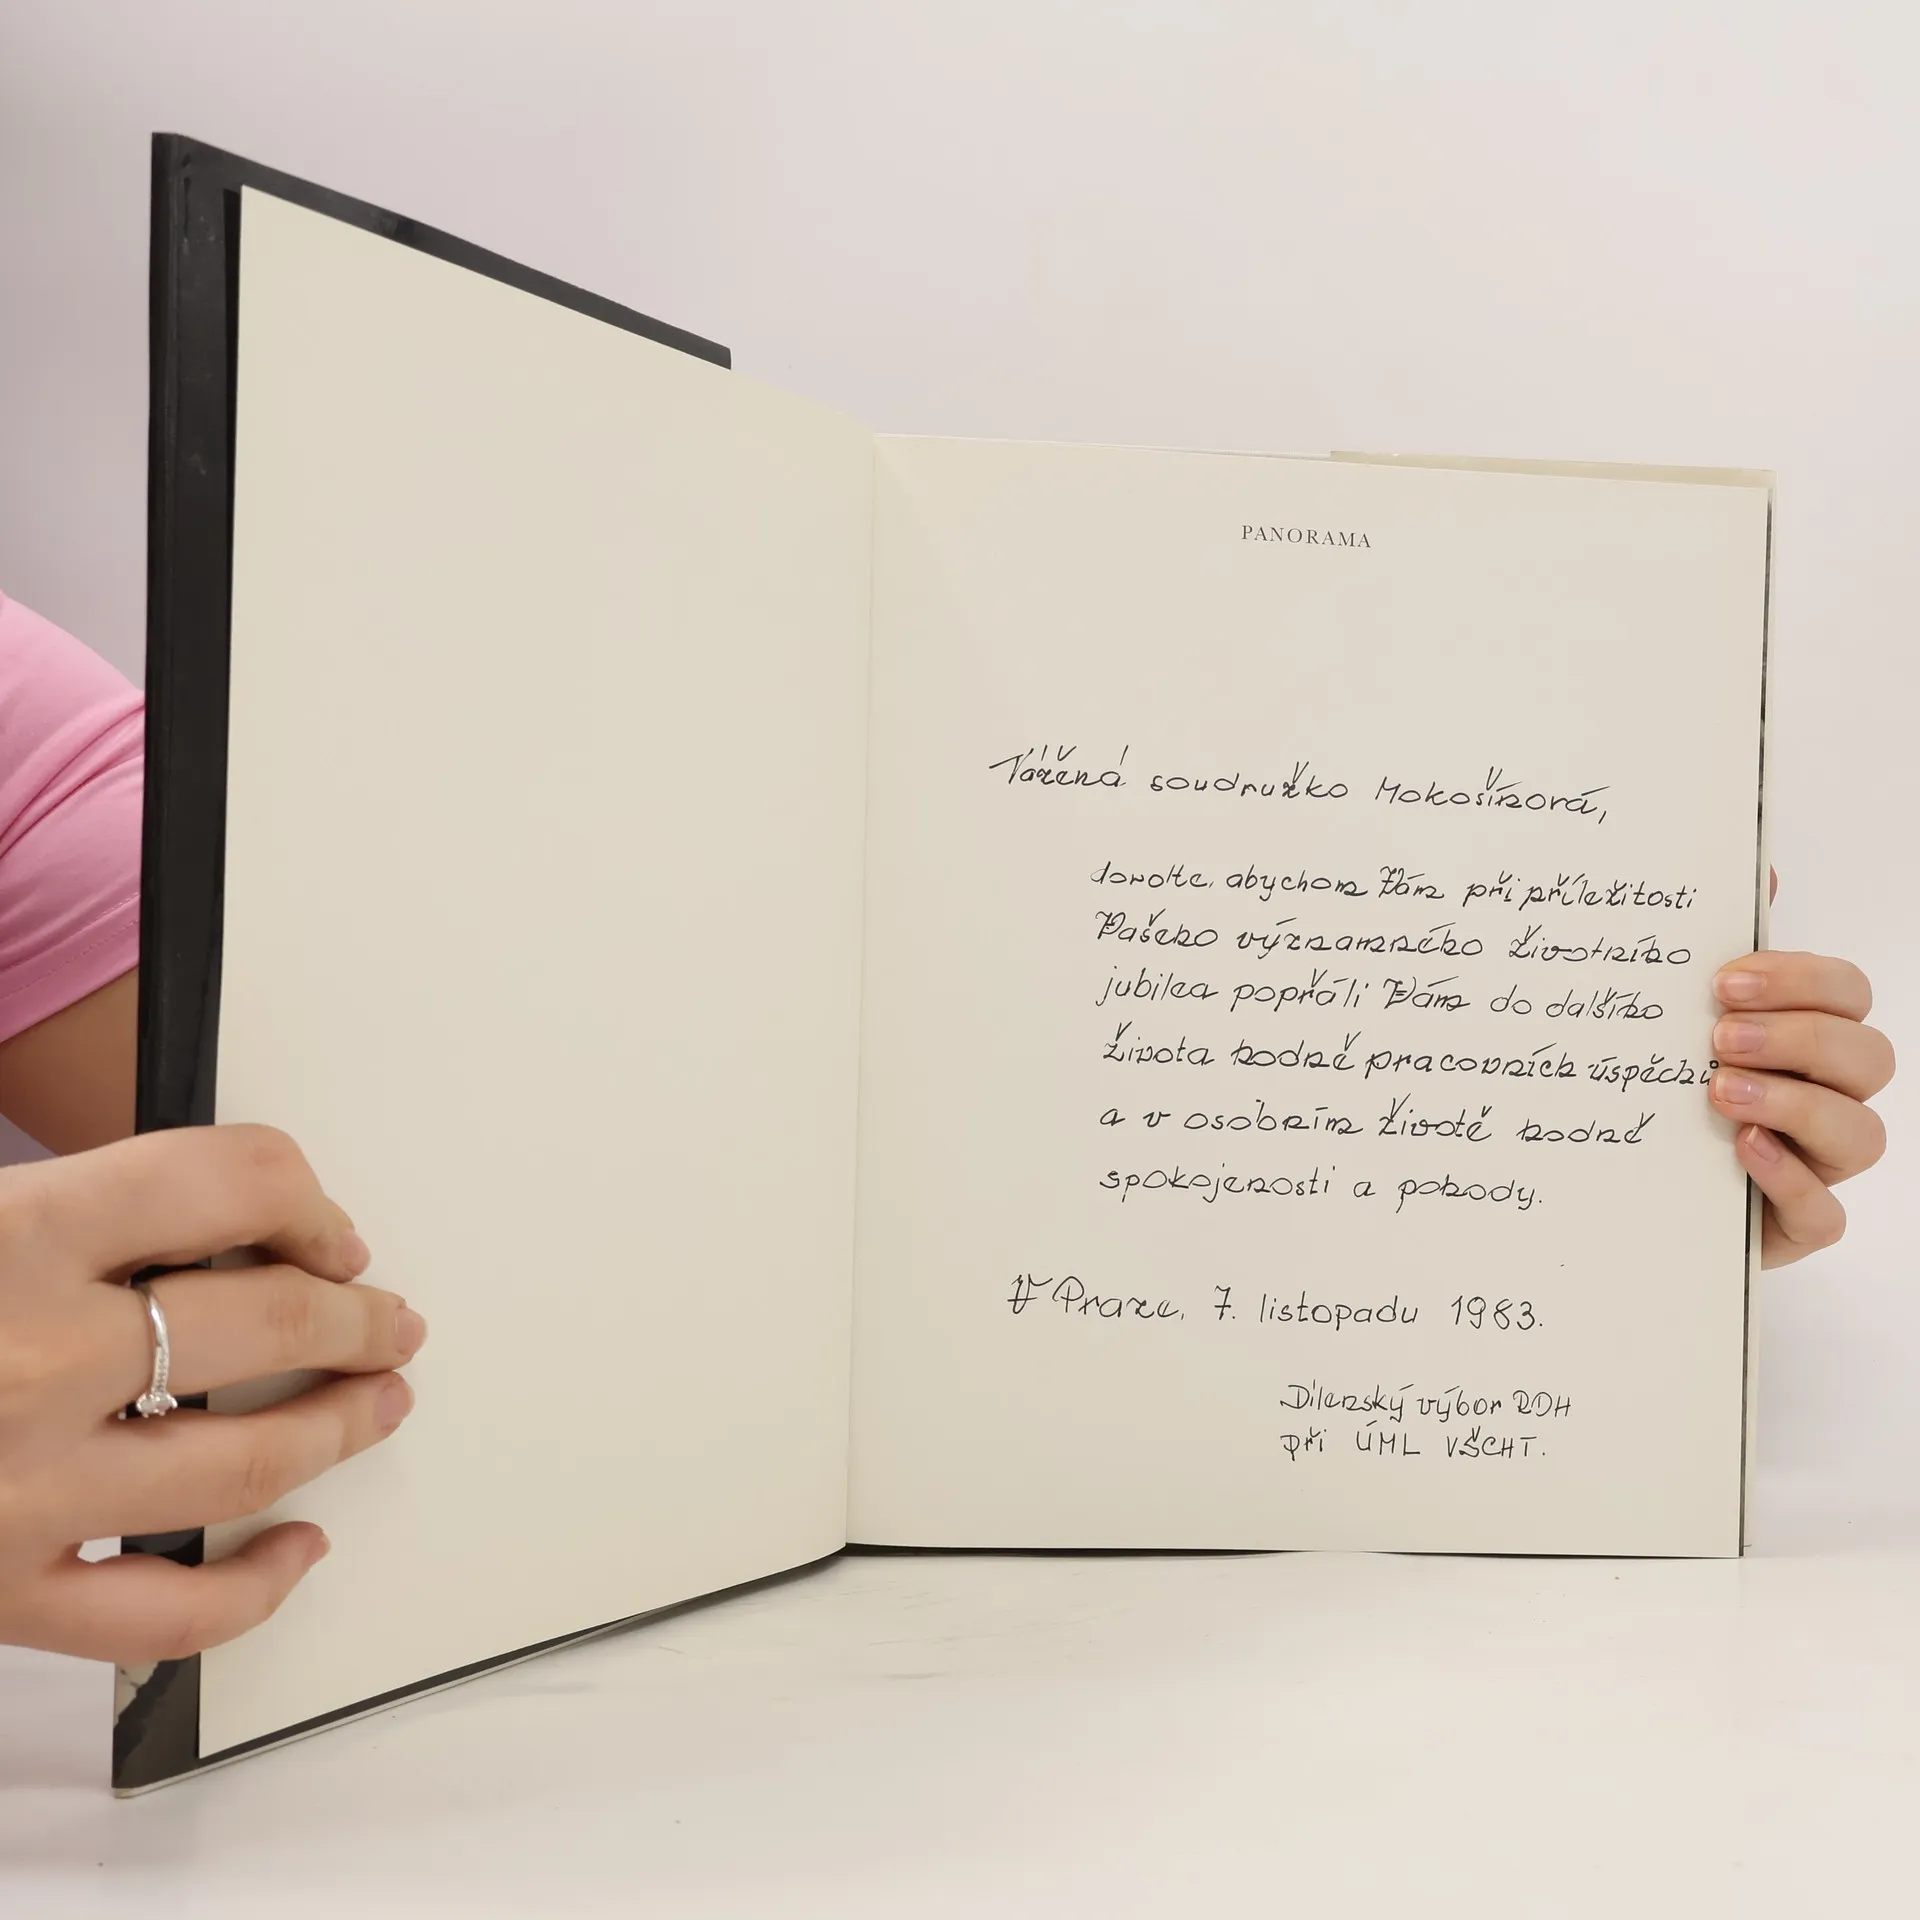 PANORAMA
Vážená soudružko Mokošínová,
dovolte, abychom Vám při příležitosti
Vašeho významného životního
jubilea popřáli Vám do dalšího
života hodně pracovních úspěchů
a v osobním životě hodně
spokojenosti a pohody.
V Praze, 7. listopadu 1983.
Dílenský výbor ROH
při ÚML VŠCHT.